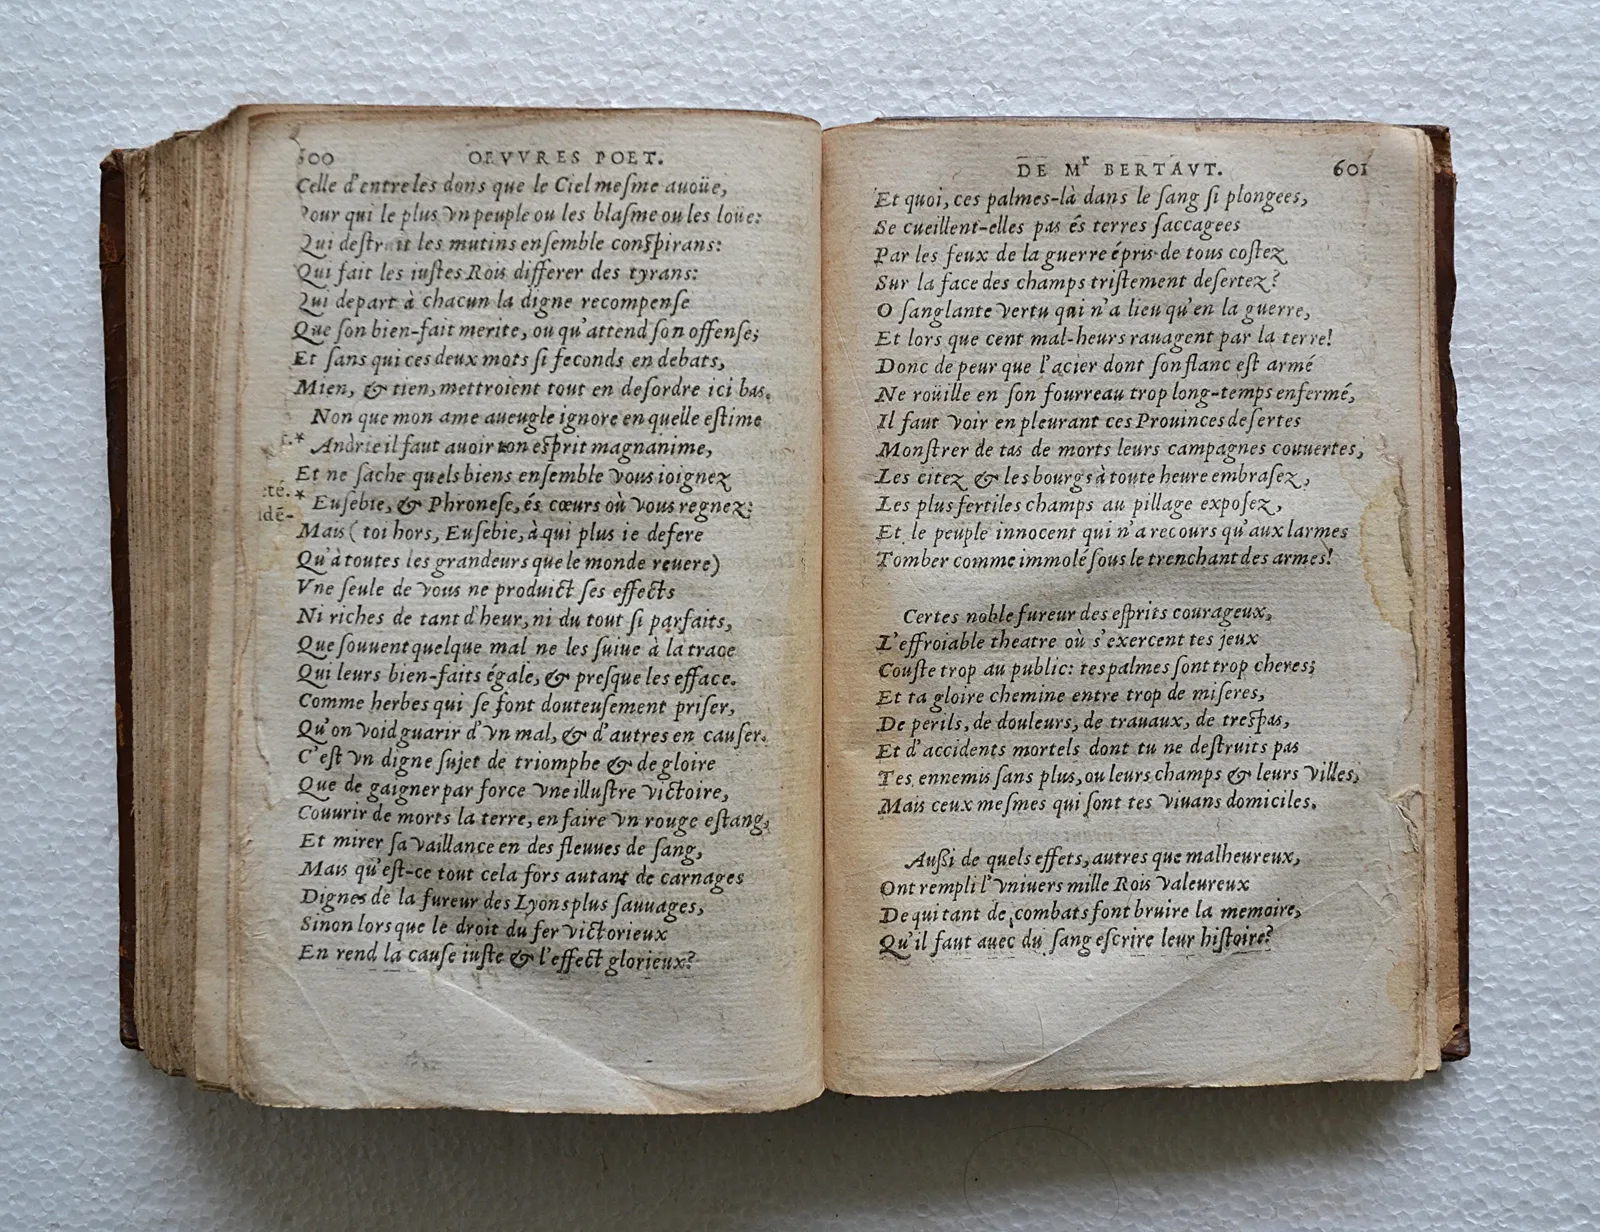 600 OEVVRES POET.
Celle d'entre les dons que le Ciel meſme auoüe,
Pour qui le plus vn peuple ou les blaſme ou les loüe:
Qui deſtruit les mutins enſemble conſpirans:
Qui fait les iuſtes Rois differer des tyrans:
Qui depart à chacun la digne recompenſe
Que ſon bien-fait merite, ou qu'attend ſon offenſe;
Et ſans qui ces deux mots ſi feconds en debats,
Mien, & tien, mettroient tout en deſordre ici bas.
Non que mon ame aueugle ignore en quelle eſtime
* Andrie il faut auoir ton eſprit magnanime,
Et ne ſache quels biens enſemble vous ioignez
té. * Euſebie, & Phroneſe, és cœurs où vous regnez:
idē-
Mais ( toi hors, Euſebie, à qui plus ie defere
Qu'à toutes les grandeurs que le monde reuere)
Vne ſeule de vous ne produict ſes effects
Ni riches de tant d'heur, ni du tout ſi parfaits,
Que ſouuent quelque mal ne les ſuiue à la trace
Qui leurs bien-faits égale, & preſque les efface.
Comme herbes qui ſe font douteuſement priſer,
Qu'on void guarir d'vn mal, & d'autres en cauſer.
C'eſt vn digne ſujet de triomphe & de gloire
Que de gaigner par force vne illuſtre victoire,
Couurir de morts la terre, en faire vn rouge eſtang,
Et mirer ſa vaillance en des fleuues de ſang,
Mais qu'eſt-ce tout cela fors autant de carnages
Dignes de la fureur des Lyons plus ſauuages,
Sinon lors que le droit du fer victorieux
En rend la cauſe iuſte & l'effect glorieux?
DE Mr BERTAVT. 601
Et quoi, ces palmes-là dans le ſang ſi plongees,
Se cueillent-elles pas és terres ſaccagees
Par les feux de la guerre épris de tous coſtez
Sur la face des champs triſtement deſertez?
O ſanglante vertu qui n'a lieu qu'en la guerre,
Et lors que cent mal-heurs rauagent par la terre!
Donc de peur que l'acier dont ſon flanc eſt armé
Ne roüille en ſon fourreau trop long-temps enfermé,
Il faut voir en pleurant ces Prouinces deſertes
Monſtrer de tas de morts leurs campagnes couuertes,
Les citez & les bourgs à toute heure embraſez,
Les plus fertiles champs au pillage expoſez,
Et le peuple innocent qui n'a recours qu'aux larmes
Tomber comme immolé ſous le trenchant des armes!
Certes noble fureur des eſprits courageux,
L'effroiable theatre où s'exercent tes jeux
Couſte trop au public: tes palmes ſont trop cheres;
Et ta gloire chemine entre trop de miſeres,
De perils, de douleurs, de trauaux, de treſpas,
Et d'accidents mortels dont tu ne deſtruits pas
Tes ennemis ſans plus, ou leurs champs & leurs villes,
Mais ceux meſmes qui ſont tes viuans domiciles.
Auſſi de quels effets, autres que malheureux,
Ont rempli l'vniuers mille Rois valeureux
De qui tant de combats font bruire la memoire,
Qu'il faut auec du ſang eſcrire leur hiſtoire?